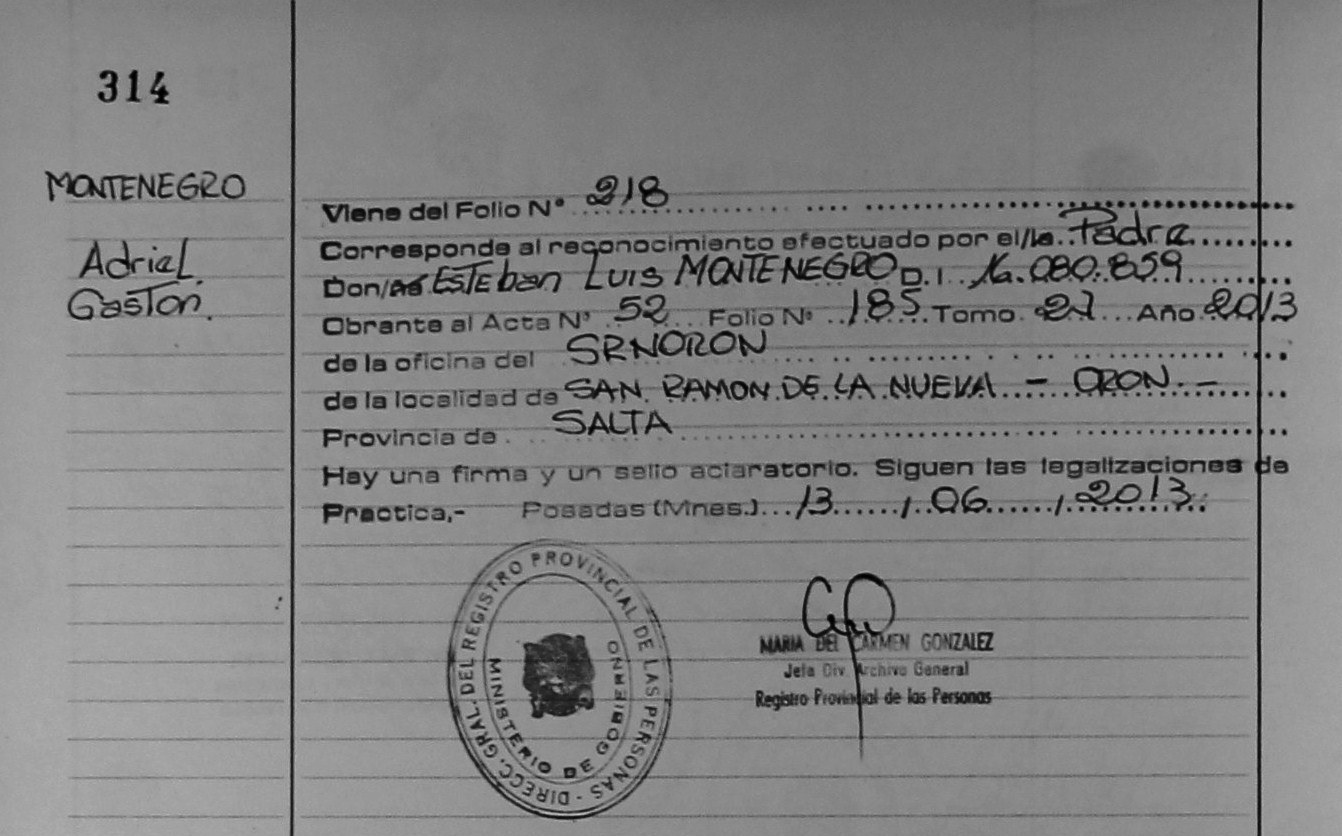 314
MONTENEGRO
Adriel
Gaston.
Viene del Folio N° 218
Corresponde al reconocimiento efectuado por el/la Padre
Don/ña ESTEban LUIS MONTENEGRO D.I. 16.080.859
Obrante al Acta N° 52 Folio N° 185 Tomo 27 Año 2013
de la oficina del SRNORON
de la localidad de SAN RAMON DE LA NUEVA - ORON. -
Provincia de SALTA
Hay una firma y un sello aclaratorio. Siguen las legalizaciones de
Practica,- Posadas (Mnes.) 13 / 06 / 2013
DIRECC. GRAL. DEL REGISTRO PROVINCIAL DE LAS PERSONAS -
MINISTERIO DE GOBIERNO
MARIA DEL CARMEN GONZALEZ
Jefa Div. Archivo General
Registro Provincial de las Personas